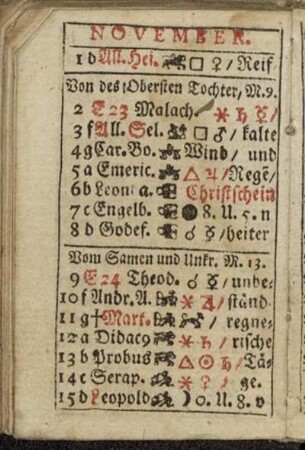 NOVEMBER.
1 d All. Hei. □ ♀ / Reif
Von des Obersten Tochter, M. 9.
2 E 23 Malach. ⚹ ♄ ☿ /
3 f All. Sel. □ ♂ / kalte
4 g Car. Bo. Wind / und
5 a Emeric. △ ♃ / Rege /
6 b Leont a. Christschein
7 c Engelb. ● 8. U. 5. n
8 d Godef. ☌ ☿ / heiter
Vom Samen und Unkr. M. 13.
9 E 24 Theod. ☌ ☿ / unbe-
10 f Andr. A. ⚹ ♃ / ständ.
11 g † Mart. / regne-
12 a Didac9 ⚹ ♄ / rische
13 b Probus △ ☉ ♄ / Tä-
14 c Serap. ⚹ ♀ / ge.
15 d Leopold ☽ 0. U. 8. v